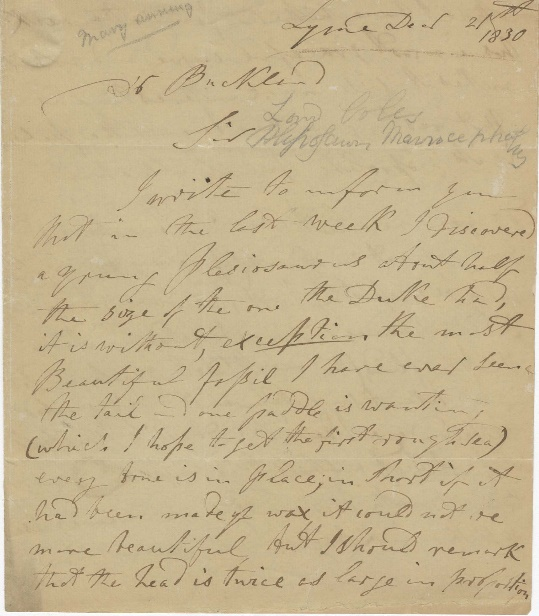 Mary Anning
Lyme Decr 21st
1830
Dr Buckland
Lord Coles
Sir
I write to inform you
that in the last week I discovered
a young Plesiosaurus about half
the size of the one the Duke had,
it is without exception the most
Beautiful fossil I have ever seen
the tail and one paddle is wanting
(which I hope to get the first rough sea)
every bone is in place; in short if it
had been made of wax it could not be
more beautiful, but I should remark
that the head is twice as large in proportion